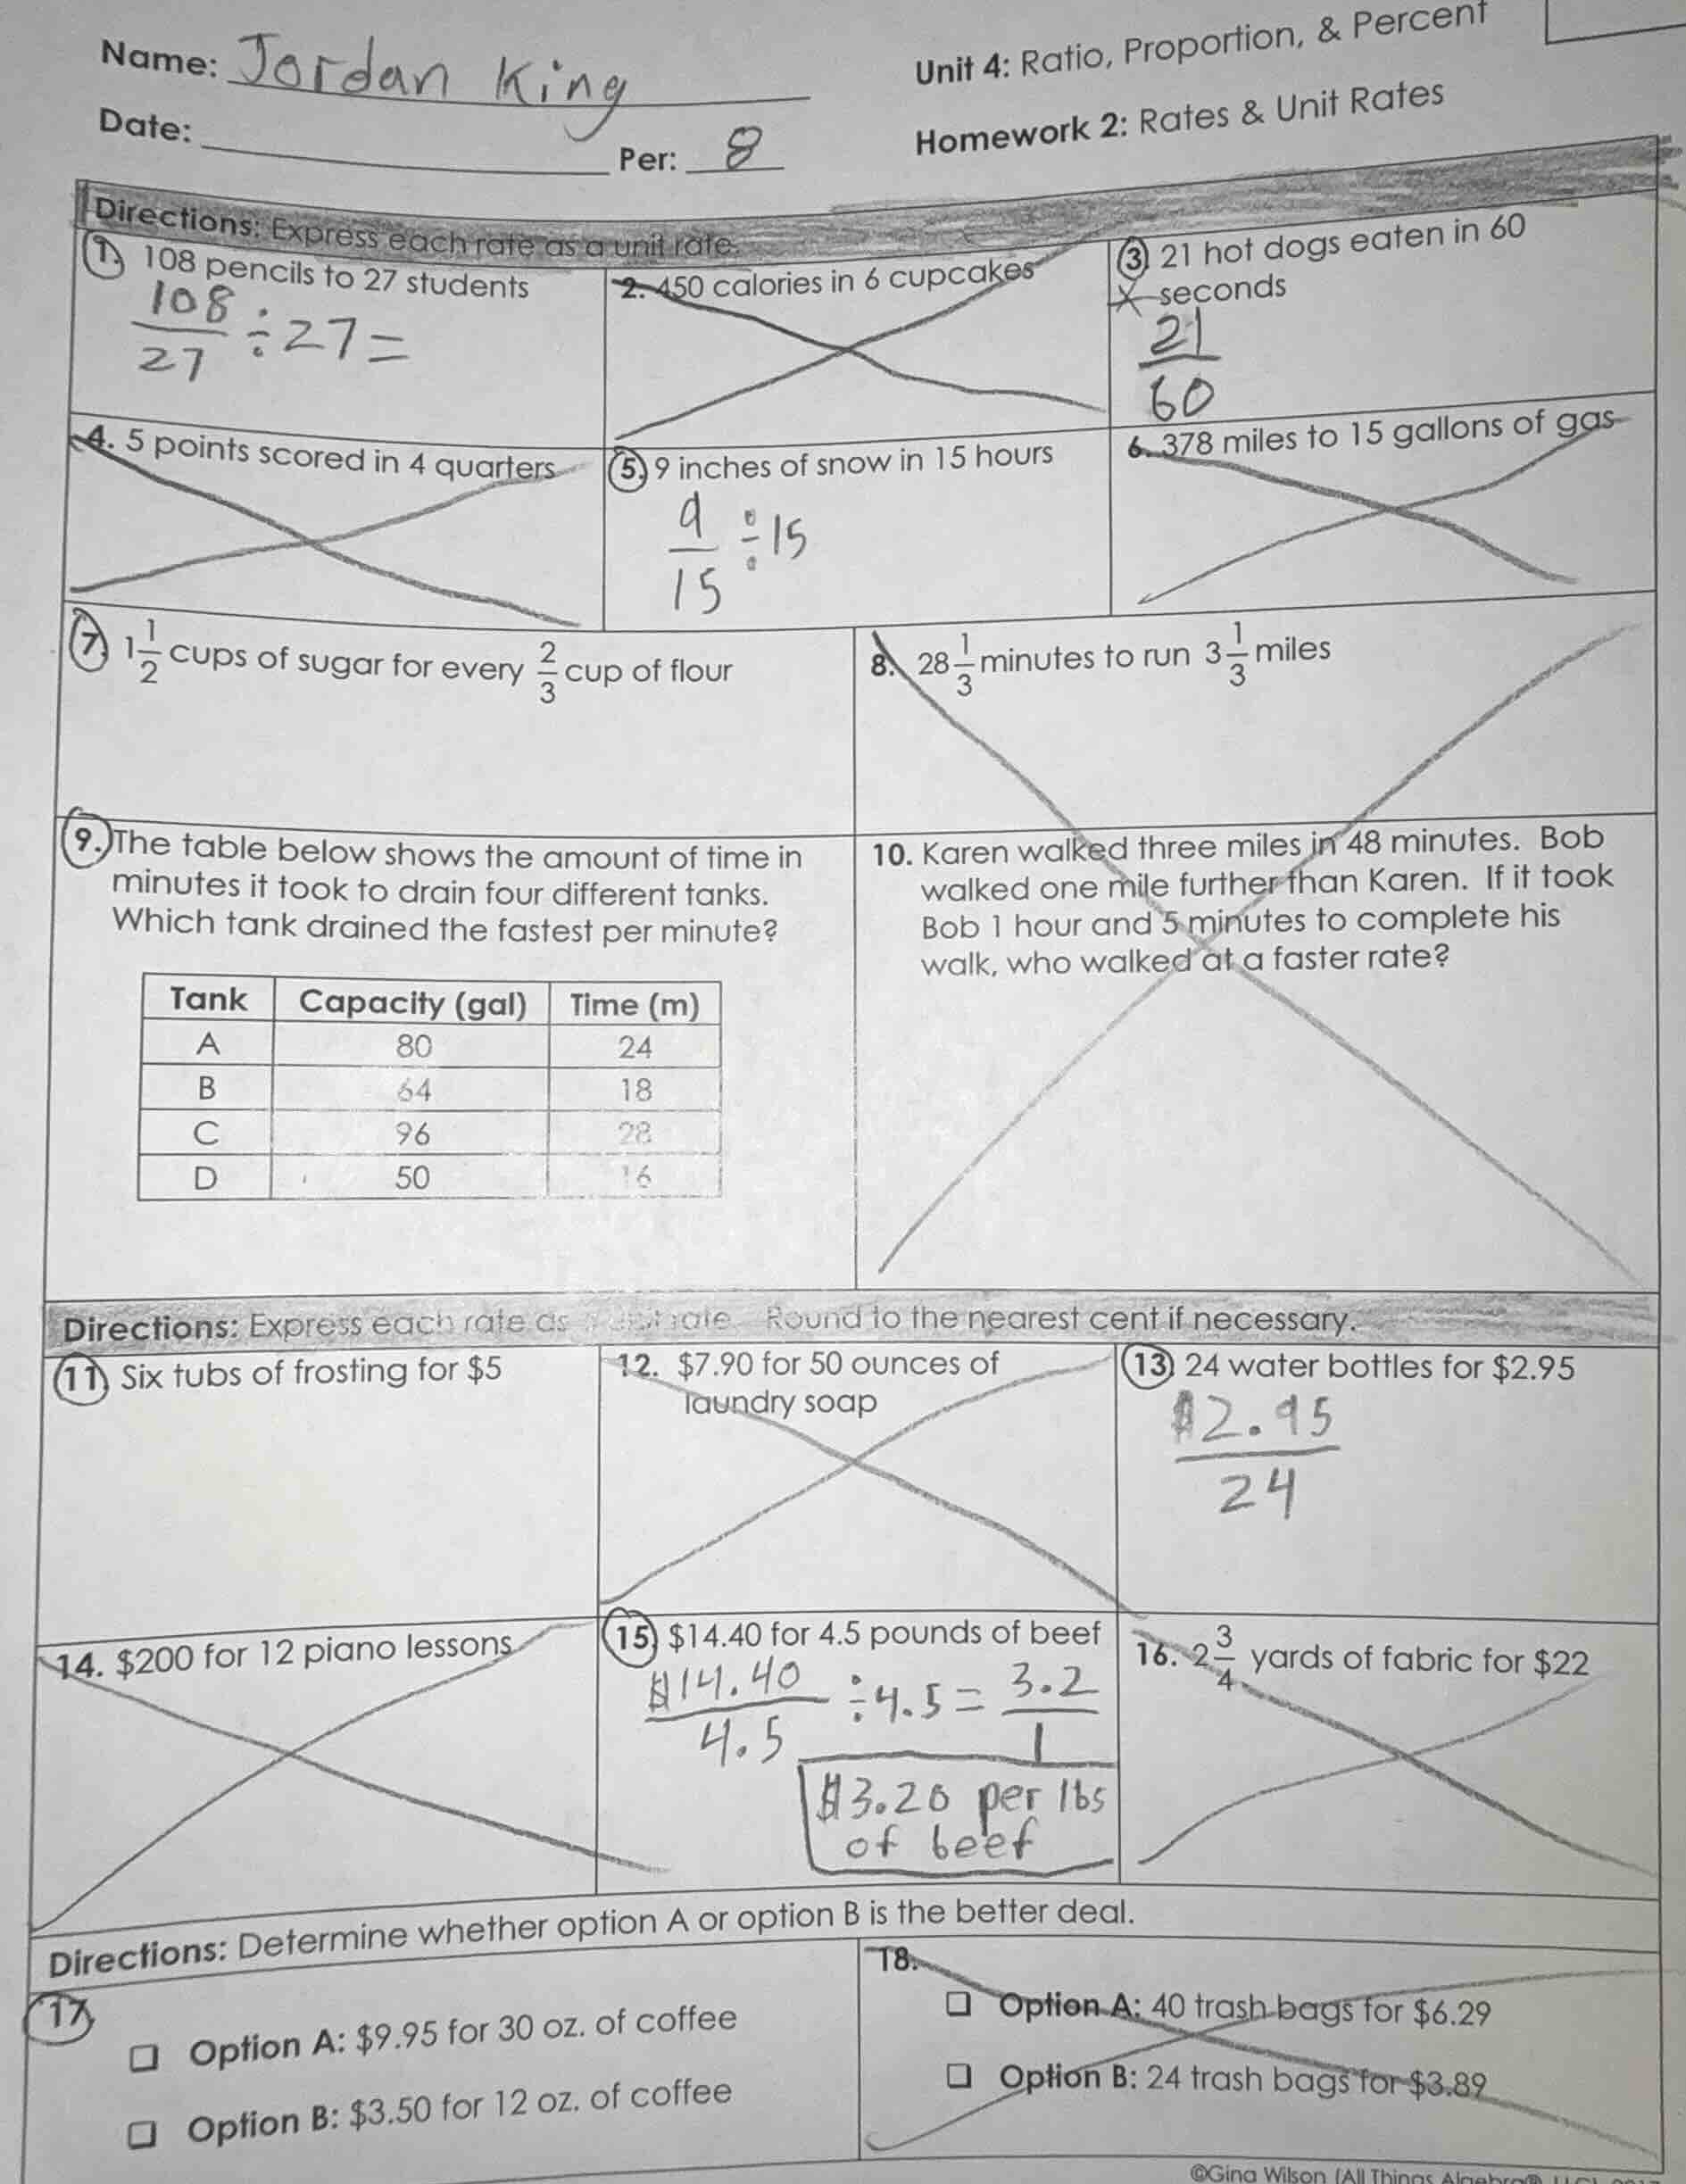 Name: Jordan King
Unit 4: Ratio, Proportion, & Percent
Date:
Per: 8
Homework 2: Rates & Unit Rates
Directions: Express each rate as a unit rate.
1. 108 pencils to 27 students
108
27
÷ 27 =
2. 450 calories in 6 cupcakes
3. 21 hot dogs eaten in 60
seconds
21
60
4. 5 points scored in 4 quarters
5. 9 inches of snow in 15 hours
9
15
÷ 15
6. 378 miles to 15 gallons of gas
7. 1 1/2 cups of sugar for every 2/3 cup of flour
8. 28 1/3 minutes to run 3 1/3 miles
9. The table below shows the amount of time in
minutes it took to drain four different tanks.
Which tank drained the fastest per minute?
Tank Capacity (gal) Time (m)
A 80 24
B 64 18
C 96 28
D 50 16
10. Karen walked three miles in 48 minutes. Bob
walked one mile further than Karen. If it took
Bob 1 hour and 5 minutes to complete his
walk, who walked at a faster rate?
Directions: Express each rate as rate. Round to the nearest cent if necessary.
11. Six tubs of frosting for $5
12. $7.90 for 50 ounces of
laundry soap
13. 24 water bottles for $2.95
$2.95
24
14. $200 for 12 piano lessons
15. $14.40 for 4.5 pounds of beef
$14.40
4.5
÷ 4.5 =
3.2
1
$3.20 per lbs
of beef
16. 2 3/4 yards of fabric for $22
Directions: Determine whether option A or option B is the better deal.
17.
Option A: $9.95 for 30 oz. of coffee
Option B: $3.50 for 12 oz. of coffee
18.
Option A: 40 trash bags for $6.29
Option B: 24 trash bags for $3.89
©Gina Wilson (All Things Algebra®